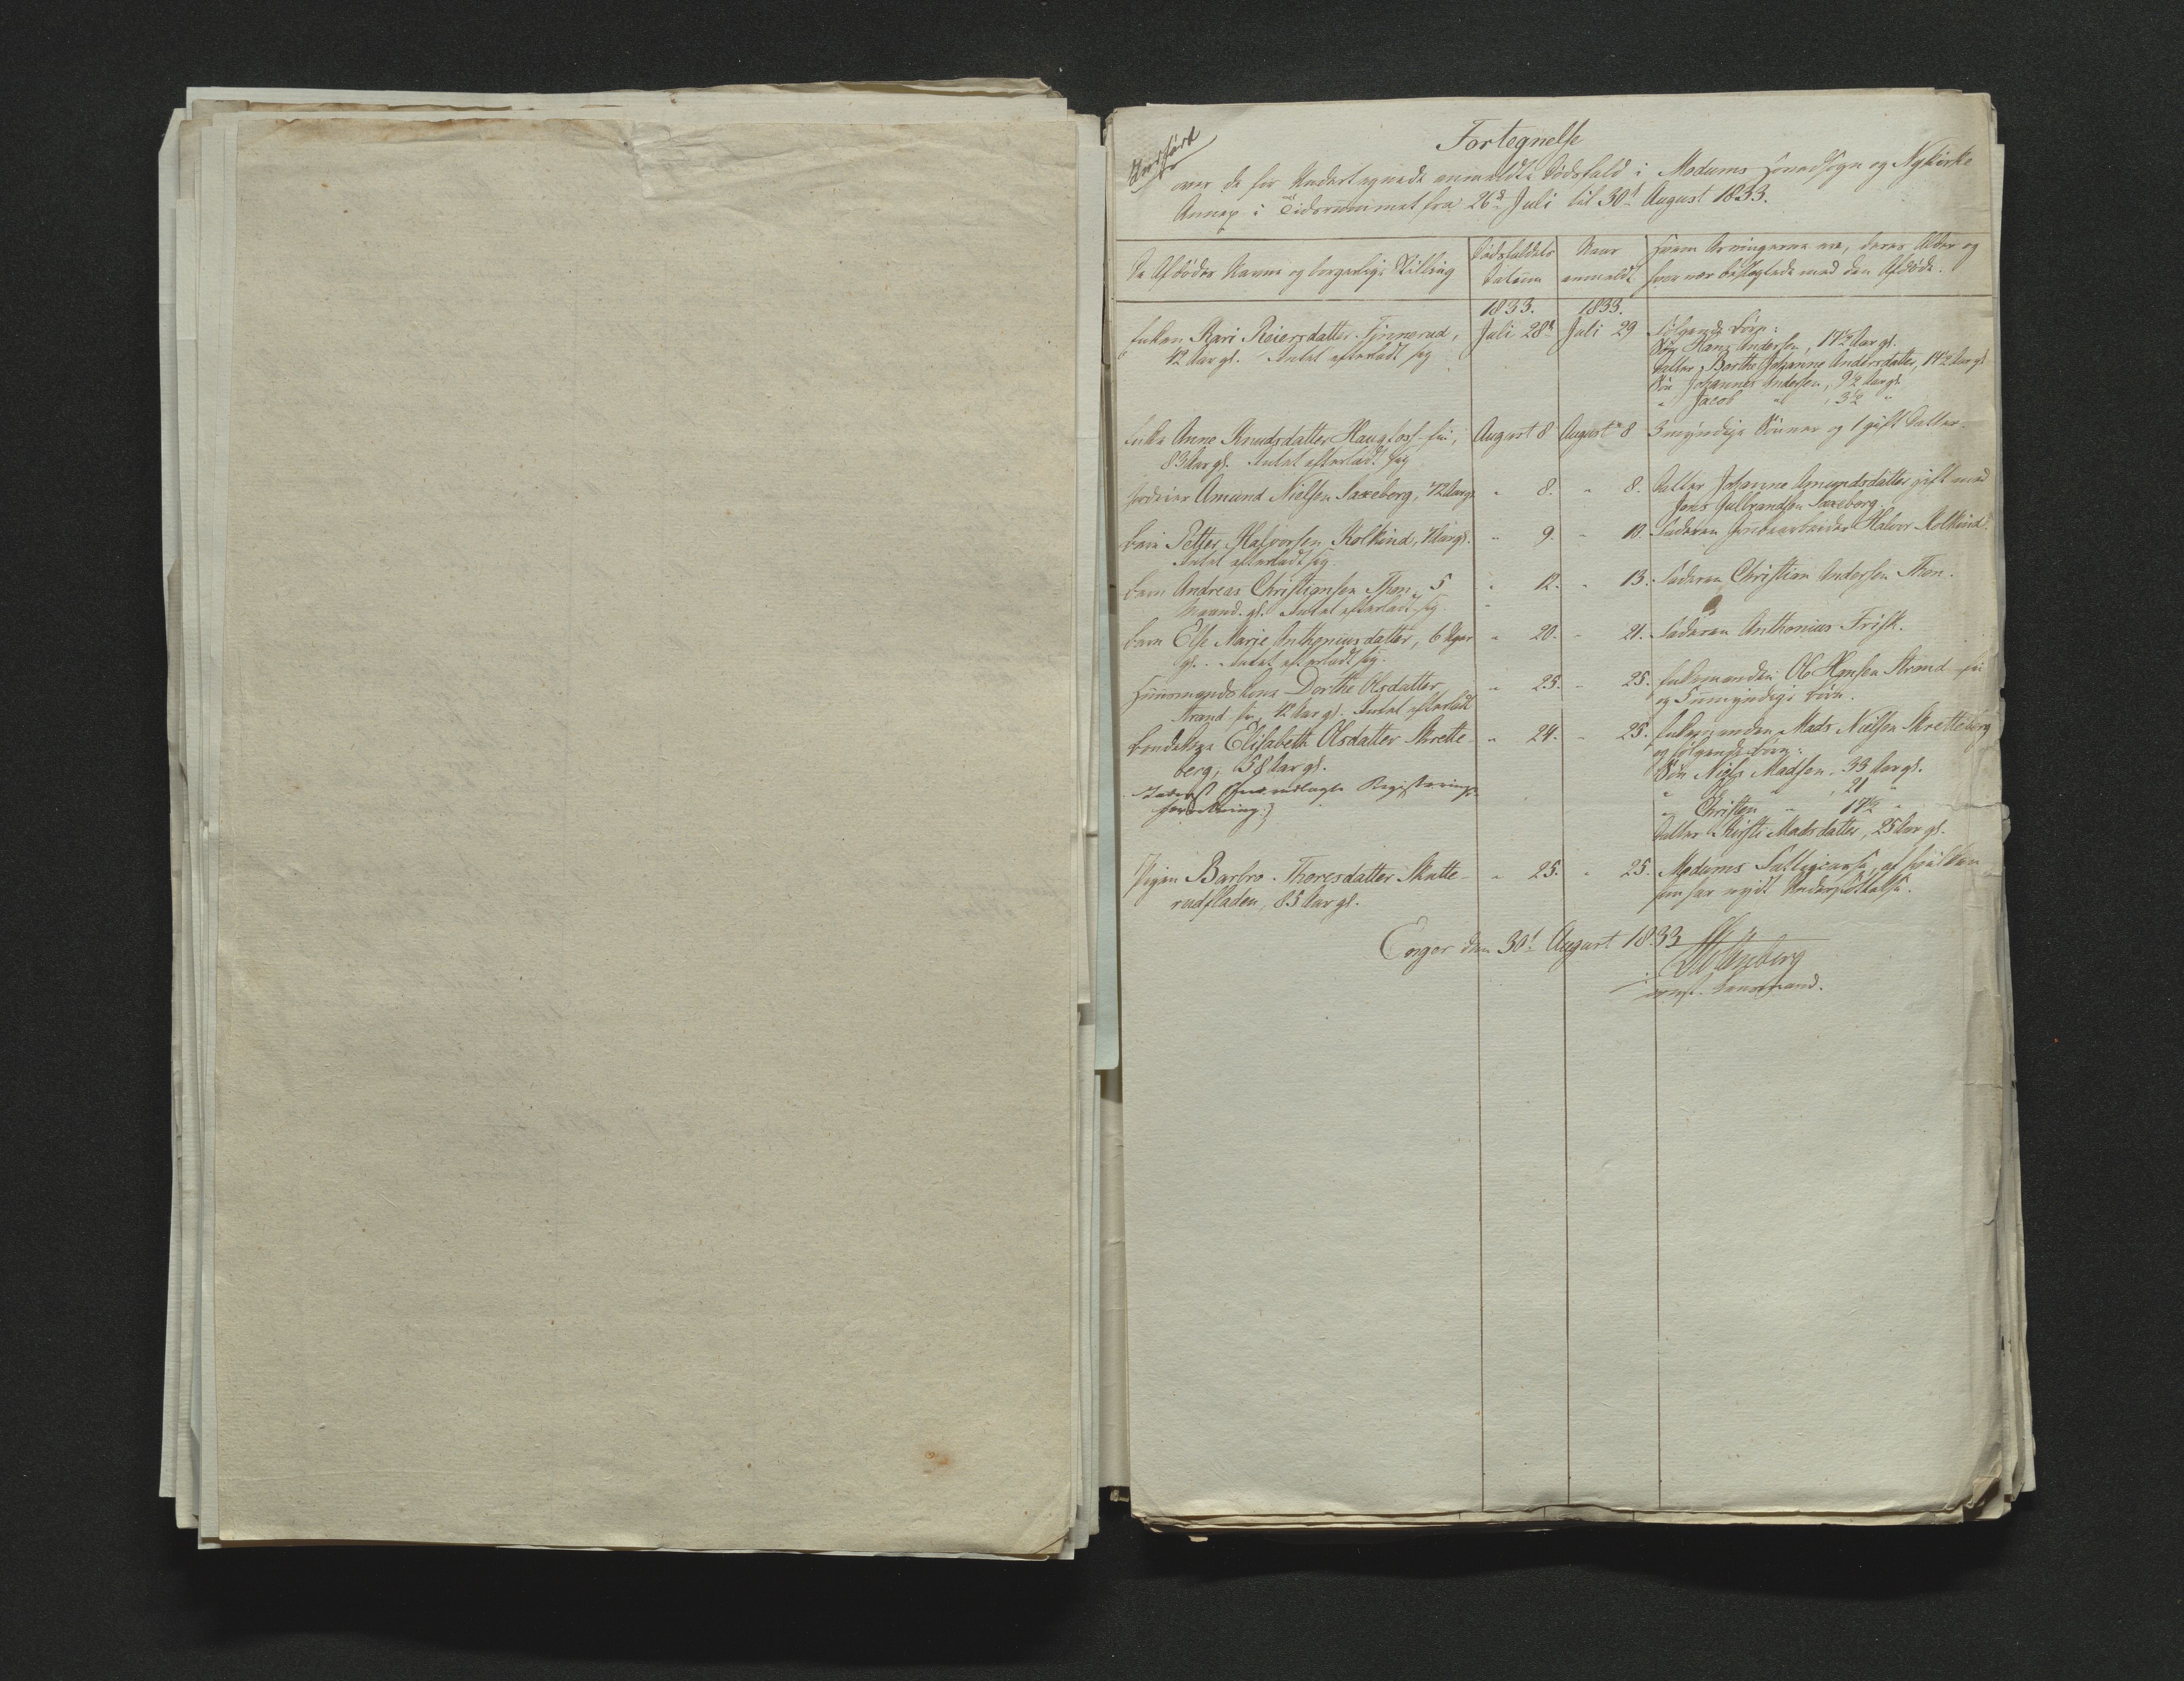 Anført
Fortegnelse
over de for Undertegnede anmeldte Dødsfald i Modums Hovedsogn og Nykirke
Annex i Tidsrummet fra 26d Juli til 30t August 1833.
De Afdødes Navne og borgerlige Stilling
Dødsfaldets Datum
Naar anmeldt
Hvem Arvingerne ere, deres Alder og
hvor nær beslægtede med den Afdøde.
1833. 1833.
Enken Kari Reiersdatter Tjnnerud, Juli 28d Juli 29 Følgende Børn:
42 Aar gl. Intet efterladt sig
Søn Hans Andersen, 17½ Aar gl.
Datter Berthe Johanne Andersdatter, 14½ Aar gl.
Søn Johannes Andersen, 9½ Aar gl.
" Jacob " , 3½ "
Enke Anne Knudsdatter Haugfoss-Eie, August 8 August 8 3 myndige Sønner og 1 gift Datter.
83 Aar gl. Intet efterladt sig
Gaardeier Amund Nielsen Saxeberg, 72 Aar gl. " 8. " 8. Datter Johanne Amundsdatter gift med
Jens Gulbrandsen Saxeberg.
Barn Petter Halvorsen Kolkind, Aar gl. " 9. " 10. Faderen Grubearbeider Halvor Kolkind.
Intet efterladt sig
Barn Andreas Christiansen Thon, 5 " 12. " 13. Faderen Christian Andersen Thon.
Maand. gl. Intet efterladt sig
Barn Else Marie Anthoniusdatter, 6 Uger " 20. " 21. Faderen Anthonius Frisk.
gl. Intet efterladt sig.
Huusmandskone Dorthe Olsdatter " 25. " 25. Enkemanden Ole Hansen Strand-Eie
Strand-Eie, 42 Aar gl. Intet efterladt
og 5 umyndige Børn.
Bondekone Elisabeth Olsdatter Skrette- " 24. " 25. Enkemanden Mads Nielsen Skretteberg
berg, 58 Aar gl.
og følgende Børn:
Søn Niels Madsen, 33 Aar gl.
Registrerings-
forretning.)
" Ole " , 21 "
" Christen " 17½ "
Datter Kirsti Madsdatter, 25 Aar gl.
Pigen Barbro Thoresdatter Skutte- " 25. " 25. Modums Fattigcasse, af hvilken
rudfladen, 85 Aar gl.
hun har nydt Understøttelse.
Enger den 30t August 1833
Lensmand.